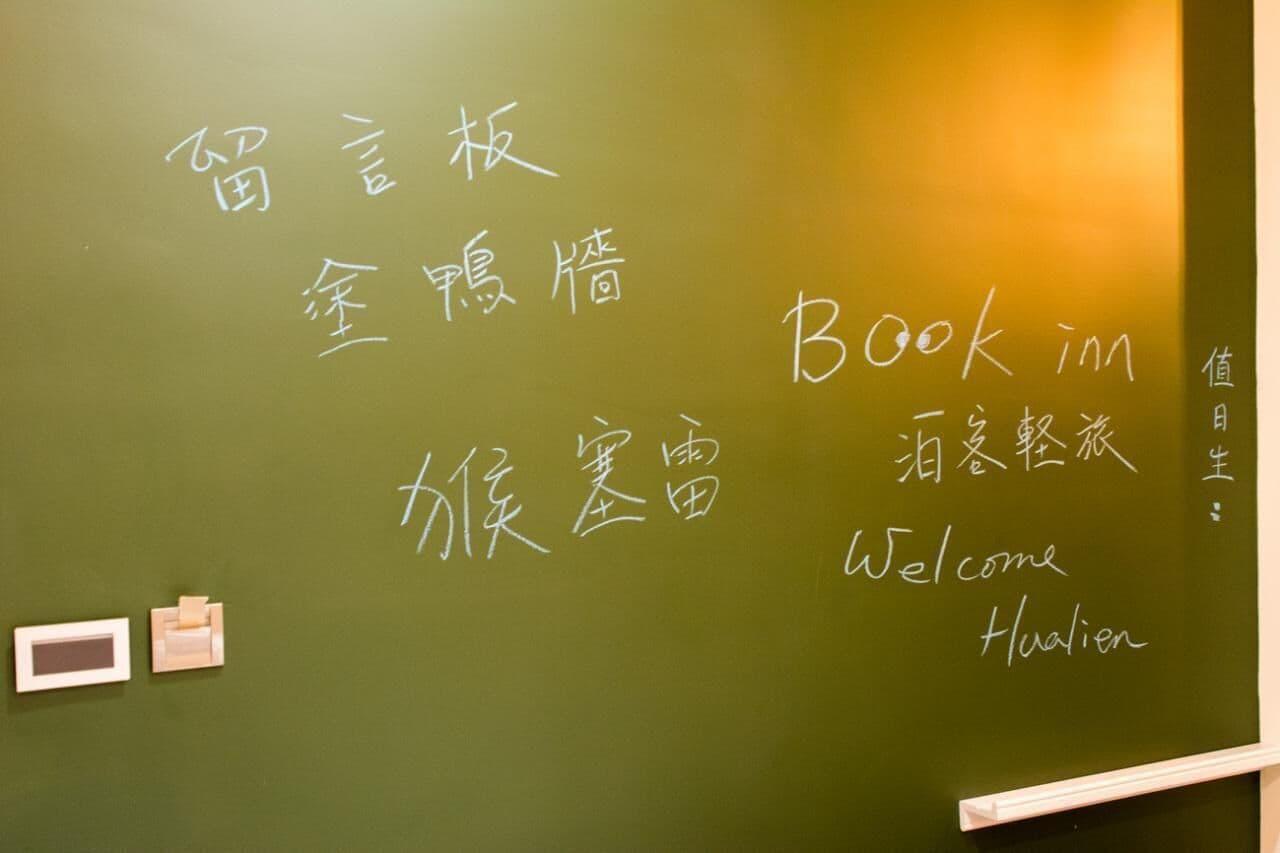 留言板
塗鴨牆
猴塞雷
Book inn
泊客軽旅
Welcome
Hualien
值日生: